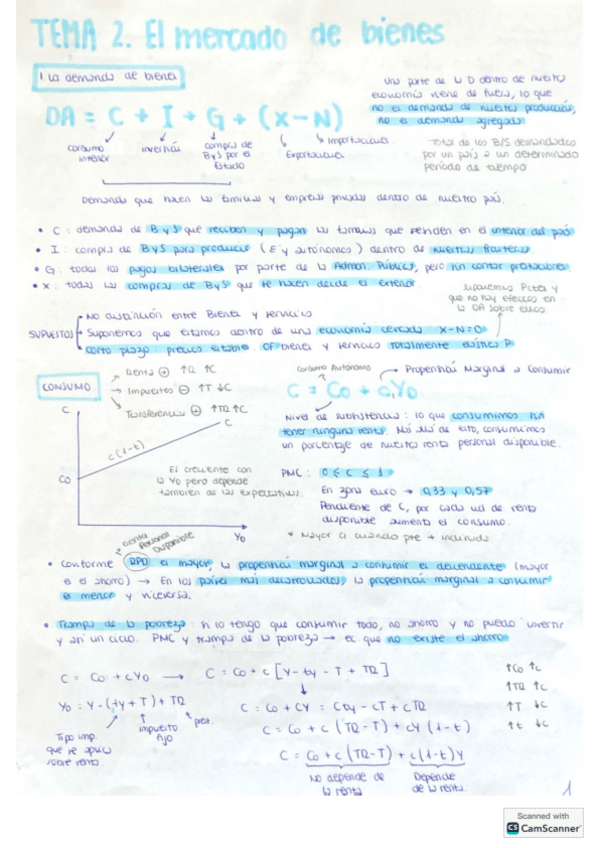 TEMA 2. El mercado de bienes
1. La demanda de bienes
Una parte de la D dentro de nuestra
economía viene de fuera, lo que
no es demanda de nuestra producción,
no es demanda agregada.
DA = C + I + G + (X - N)
consumo interior
inversión
compra de ByS por el Estado
Exportaciones
Importaciones
Total de los B/S demandados
por un país a un determinado
período de tiempo
Demanda que hacen las familias y empresas privadas dentro de nuestro país.
• C: demanda de ByS que reciben y pagan las familias que residen en el interior del país
• I: compra de ByS para producir (E y autónomos) dentro de nuestras fronteras
• G: todos los pagos bilaterales por parte de la Admon. Pública, pero sin contar prestaciones
• X: todas las compras de ByS que se hacen desde el exterior.
que no hay efectos en
la DA sobre ellos
SUPUESTOS
No distinción entre Bienes y servicios
Suponemos que estamos dentro de una economía cerrada X-N=0
Corto plazo: precios estable. OF bienes y servicios totalmente elástica P
CONSUMO
Renta ⊕ ↑R ↑C
Impuestos ⊖ ↑T ↓C
Transferencias ⊕ ↑TR ↑C
Consumo Autónomo
Propensión Marginal a Consumir
C = C0 + c1YD
C
C
c(1-t)
C0
YD
Renta Personal Disponible
Es creciente con
la YD pero depende
también de las expectativas.
Nivel de subsistencia: lo que consumimos sin
tener ninguna renta. Más allá de esto, consumimos
un porcentaje de nuestra renta personal disponible.
PMC: 0 ≤ c ≤ 1
En zona euro → 0,33 y 0,57
Pendiente de C, por cada ud de renta
disponible aumenta el consumo.
* Mayor c cuando más + inclinada
• Conforme RPD es mayor, la propensión marginal a consumir es decreciente (mayor
es el ahorro) → En los países más desarrollados, la propensión marginal a consumir
es menor y viceversa.
• Trampa de la pobreza: si lo tengo que consumir todo, no ahorro y no puedo invertir
y así un ciclo. PMC y trampa de la pobreza → es que no existe el ahorro
C = C0 + cYD → C = C0 + c [Y - ty - T + TR]
YD = Y - (ty + T) + TR
Tipo imp. que se aplica sobre renta
impuesto fijo
prest.
C = C0 + CY = Cty - CT + CTR
C = C0 + c (TR - T) + CY (1-t)
C = C0 + c (TR - T) + c(1-t) Y
No depende de la renta
Depende de la renta.
↑C0 ↑C
↑TR ↑C
↑T ↓C
↑t ↓C
1
Scanned with
CS CamScanner